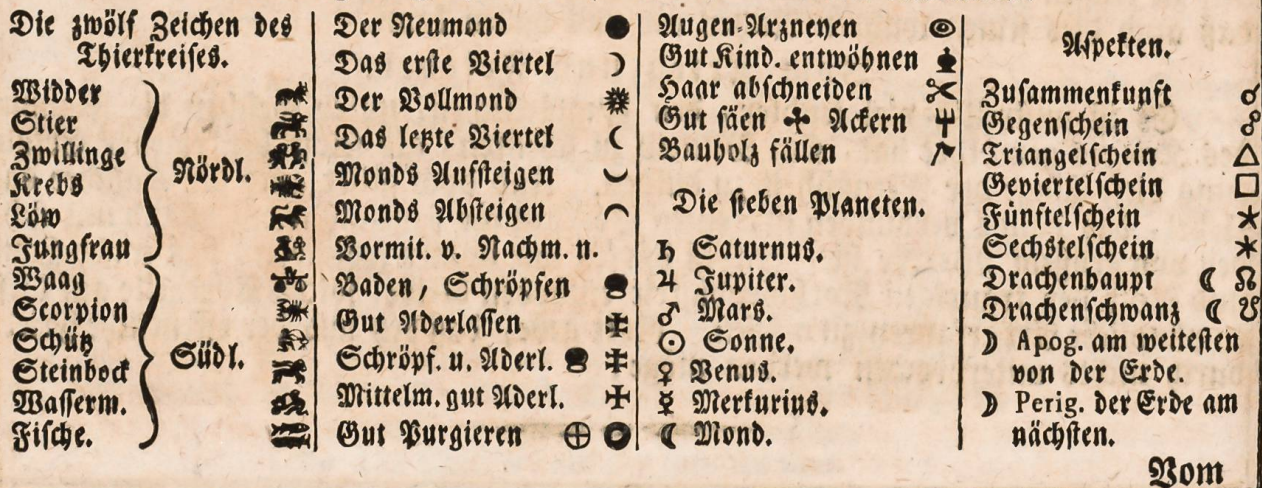 Die zwölf Zeichen des
Thierkreises.
Widder
Stier
Zwillinge
Krebs
Löw
Jungfrau
Nördl.
Waag
Scorpion
Schütz
Steinbock
Wasserm.
Fische.
Südl.
Der Neumond ●
Das erste Viertel ☽
Der Vollmond
Das letzte Viertel ☾
Monds Aufsteigen
Monds Absteigen
Vormit. v. Nachm. n.
Baden, Schröpfen
Gut Aderlassen
Schröpf. u. Aderl.
Mittelm. gut Aderl.
Gut Purgieren
Augen-Arzneyen
Gut Kind. entwöhnen
Haar abschneiden
Gut säen Ackern
Bauholz fällen
Die sieben Planeten.
♄ Saturnus.
♃ Jupiter.
♂ Mars.
☉ Sonne.
♀ Venus.
☿ Merkurius.
☾ Mond.
Aspekten.
Zusammenkunft ☌
Gegenschein ☍
Triangelschein △
Geviertelschein □
Fünftelschein ★
Sechstelschein ✶
Drachenhaupt ☾ ☊
Drachenschwanz ☾ ☋
☽ Apog. am weitesten
von der Erde.
☽ Perig. der Erde am
nächsten.
Vom